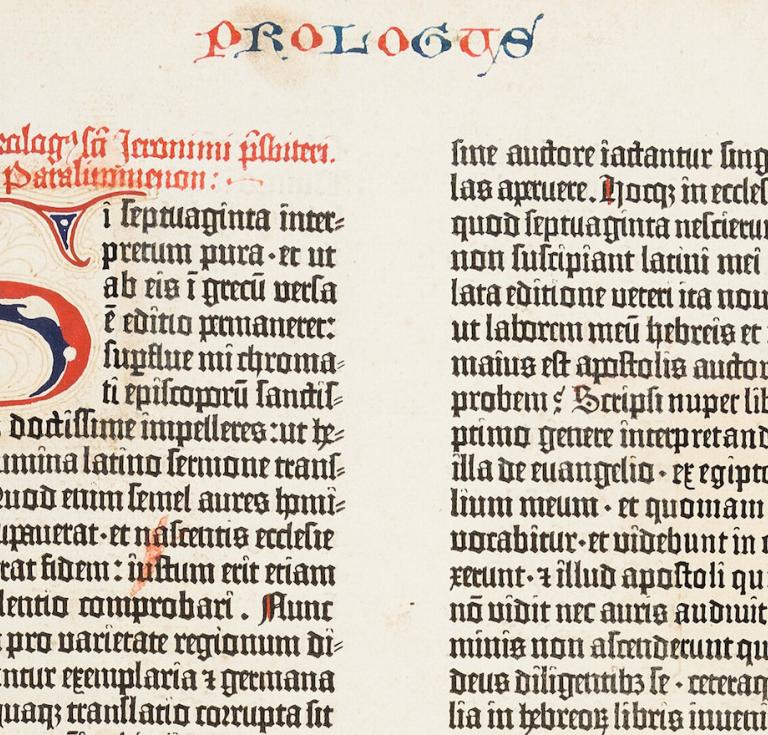 PROLOGUS
rolog⁹ sā Ieronimi p̄sbiteri.
Paralipimenon:
Si septuaginta inter⸗
pretum pura·et ut
ab eis ī grecū versa
ē editio ꝑmaneret:
suꝑflue mi chroma⸗
ti episcoporū sanctis⸗
doctissime impelleres:ut he⸗
umina latino sermone trans⸗
Quod enim semel aures homi⸗
upauerat·et nascentis ecclesie
rat fidem: iustum erit etiam
lentio comprobari. Nunc
pro varietate regionum di⸗
ntur exemplaria ⁊ germana
quaqꝫ translatio corrupta sit
sine auctore iactantur sing
las aꝑuere. Hocqꝫ in eccles
quod septuaginta nescierun
non suscipiant latini mei
lata editione veteri ita nou
ut laborem meū hebreis et
maius est apostolis auctor
probem Scripsi nuper lib
primo genere interpretand
illa de euangelio·ex egipto
lium meum·et quoniam
vocabitur·et videbunt in
xerunt·⁊ illud apostoli qu
nō vidit nec auris audiuit
minis non ascenderunt qu
deus diligentibꝫ se·ceteraq
lia in hebreoꝝ libris inueni